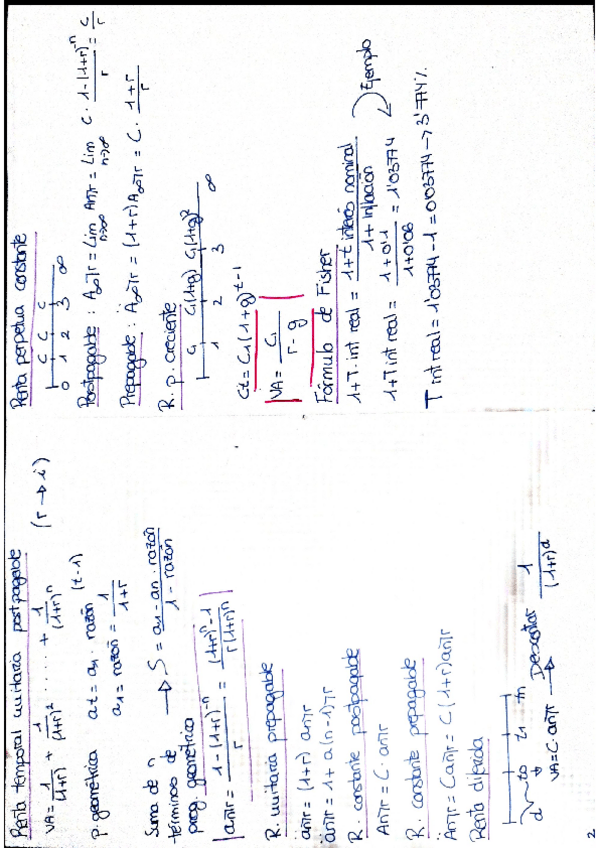 Renta temporal unitaria postpagable
VA = 1/(1+r) + 1/(1+r)² ..... + 1/(1+r)ⁿ (r → i)
p. geométrica at = a1 · razón (t-1)
a1 = razón = 1/1+r
Suma de n
términos de → S = a1 - an · razón / 1 - razón
prog. geométrica
an̄r = 1 - (1+r)⁻ⁿ / r = (1+r)ⁿ - 1 / r(1+r)ⁿ
R. unitaria prepagable
än̄r = (1+r) an̄r
än̄r = 1 + a(n-1)r
R. constante postpagable
An̄r = C · an̄r
R. constante prepagable
Än̄r = C än̄r = C (1+r) an̄r
Renta diferida
d t0 t1 tn
VA = C · an̄r → Descontar 1/(1+r)ᵈ
2
Renta perpetua constante
C C C
0 1 2 3 ∞
Postpagable : A∞r = Lim n→∞ An̄r = Lim n→∞ C · 1 - (1+r)⁻ⁿ / r = C/r
Prepagable : Ä∞r = (1+r) A∞r = C · 1+r / r
R. p. creciente
C1 C1(1+g) C1(1+g)²
1 2 3 ∞
Ct = C1 (1+g)ᵗ⁻¹
VA = C1 / r - g
Fórmula de Fisher
1 + T. int real = 1 + t interés nominal / 1 + inflación
1 + T int real = 1 + 0'1 / 1 + 0'06 = 1'03774 Ejemplo
T int real = 1'03774 - 1 = 0'03774 → 3'774%.